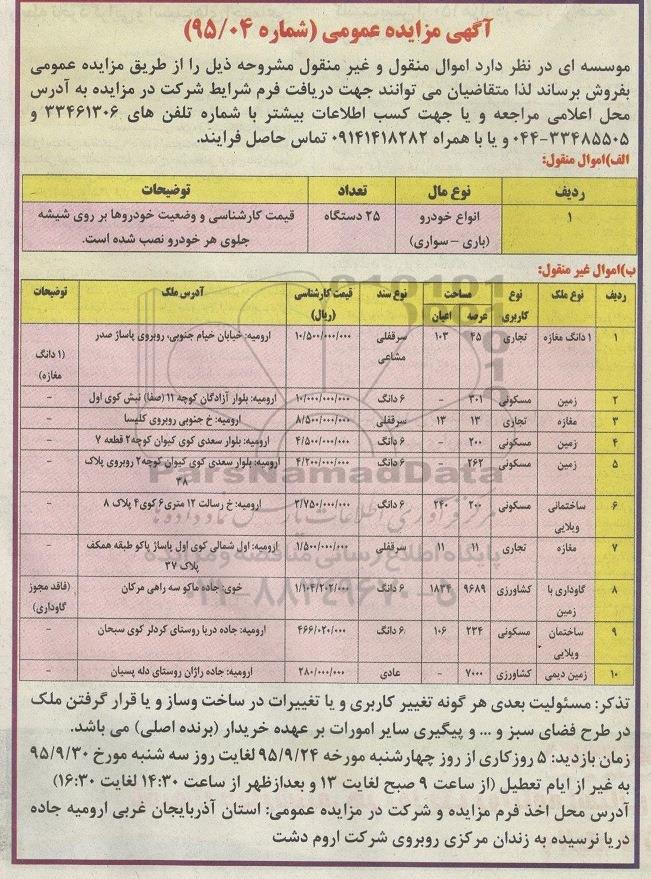 آگهی مزایده عمومی (شماره ۹۵/۰۴)
موسسه ای در نظر دارد اموال منقول و غیر منقول مشروحه ذیل را از طریق مزایده عمومی
بفروش برساند لذا متقاضیان می توانند جهت دریافت فرم شرایط شرکت در مزایده به آدرس
محل اعلامی مراجعه و یا جهت کسب اطلاعات بیشتر با شماره تلفن های ۳۳۴۶۱۳۰۶ و
۳۳۴۸۵۵۰۵-۰۴۴ و یا با همراه ۰۹۱۴۱۴۱۸۲۸۲ تماس حاصل فرایند.
الف)اموال منقول:
ردیف نوع مال تعداد توضیحات
۱ انواع خودرو ۲۵ دستگاه قیمت کارشناسی و وضعیت خودروها بر روی شیشه
(باری – سواری) جلوی هر خودرو نصب شده است.
ب)اموال غیر منقول:
ردیف نوع ملک نوع مساحت نوع سند قیمت کارشناسی آدرس ملک توضیحات
کاربری عرصه اعیان (ریال)
۱ ۱ دانگ مغازه تجاری ۴۵ ۱۰۳ سرقفلی ۱۰/۵۰۰/۰۰۰/۰۰۰ ارومیه: خیابان خیام جنوبی، روبروی پاساژ صدر (۱ دانگ
مشاعی مغازه)
۲ زمین مسکونی ۳۰۱ - ۶ دانگ ۱۰/۰۰۰/۰۰۰/۰۰۰ ارومیه: بلوار آزادگان کوچه ۱۱ (صفا) نبش کوی اول -
۳ مغازه تجاری ۱۳ ۱۳ سرقفلی ۸/۵۰۰/۰۰۰/۰۰۰ ارومیه: خ جنوبی روبروی کلیسا -
۴ زمین مسکونی ۲۰۰ - ۶ دانگ ۴/۵۰۰/۰۰۰/۰۰۰ ارومیه: بلوار سعدی کوی کیوان کوچه۲ قطعه ۷ -
۵ زمین مسکونی ۲۶۲ - ۶ دانگ ۴/۲۰۰/۰۰۰/۰۰۰ ارومیه: بلوار سعدی کوی کیوان کوچه۲ روبروی پلاک -
۳۸
۶ ساختمانی مسکونی ۲۰۰ ۲۴۰ ۶ دانگ ۳/۷۵۰/۰۰۰/۰۰۰ ارومیه: خ رسالت ۱۲ متری۶ کوی۴ پلاک ۸ -
ویلایی
۷ مغازه تجاری ۱۱ ۱۱ سرقفلی ۱/۵۰۰/۰۰۰/۰۰۰ ارومیه: اول شمالی کوی اول پاساژ پاکو طبقه همکف -
پلاک ۳۷
۸ گاوداری با کشاورزی ۹۶۸۹ ۱۸۳۴ ۶ دانگ ۱/۱۰۴/۲۰۲/۰۰۰ خوی: جاده ماکو سه راهی مرکان (فاقد مجوز
زمین گاوداری)
۹ ساختمان مسکونی ۲۳۴ ۱۰۶ ۶ دانگ ۴۶۶/۰۲۰/۰۰۰ ارومیه: جاده دریا روستای کردلر کوی سبحان -
ویلایی
۱۰ زمین دیمی کشاورزی ۷۰۰۰ - عادی ۲۸۰/۰۰۰/۰۰۰ ارومیه: جاده راژان روستای دله پسیان -
تذکر: مسئولیت بعدی هر گونه تغییر کاربری و یا تغییرات در ساخت وساز و یا قرار گرفتن ملک
در طرح فضای سبز و ... و پیگیری سایر امورات بر عهده خریدار (برنده اصلی) می باشد.
زمان بازدید: ۵ روزکاری از روز چهارشنبه مورخه ۹۵/۹/۲۴ لغایت روز سه شنبه مورخ ۹۵/۹/۳۰
به غیر از ایام تعطیل (از ساعت ۹ صبح لغایت ۱۳ و بعدازظهر از ساعت ۱۴:۳۰ لغایت ۱۶:۳۰)
آدرس محل اخذ فرم مزایده و شرکت در مزایده عمومی: استان آذربایجان غربی ارومیه جاده
دریا نرسیده به زندان مرکزی روبروی شرکت اروم دشت
ParsNamadData
پایگاه اطلاع رسانی مناقصه و مزایده